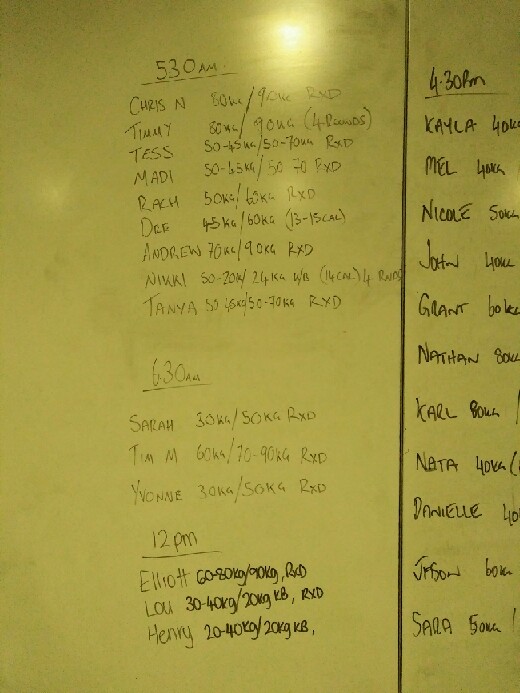 530AM
CHRIS N 80KG/90KG RXD
TIMMY 60KG/90KG (4 ROUNDS)
TESS 50-45KG/50-70KG RXD
MADI 50-45KG/50 70 RXD
RACH 50KG/65KG RXD
DRE 45KG/60KG (13-15CAL)
ANDREW 70KG/90KG RXD
NIKKI 50-20K/24KG K/B (14CAL) 4 RNDS
TANYA 50 45KG/50-70KG RXD
6.30AM
SARAH 30KG/50KG RXD
TIM M 60KG/70-90KG RXD
YVONNE 30KG/50KG RXD
12pm
Elliott 60-80kg/90kg, RXD
LOU 30-40kg/20kg KB, RXD
Henry 20-40kg/20kg KB,
4.30pm
KAYLA 40KG
MEL 40KG
NICOLE 50KG
JOHN 40KG
GRANT 60KG
NATHAN 80KG
KARL 80KG /
NATA 40KG (
DANIELLE 40
JASON 60KG
SARA 50KG /